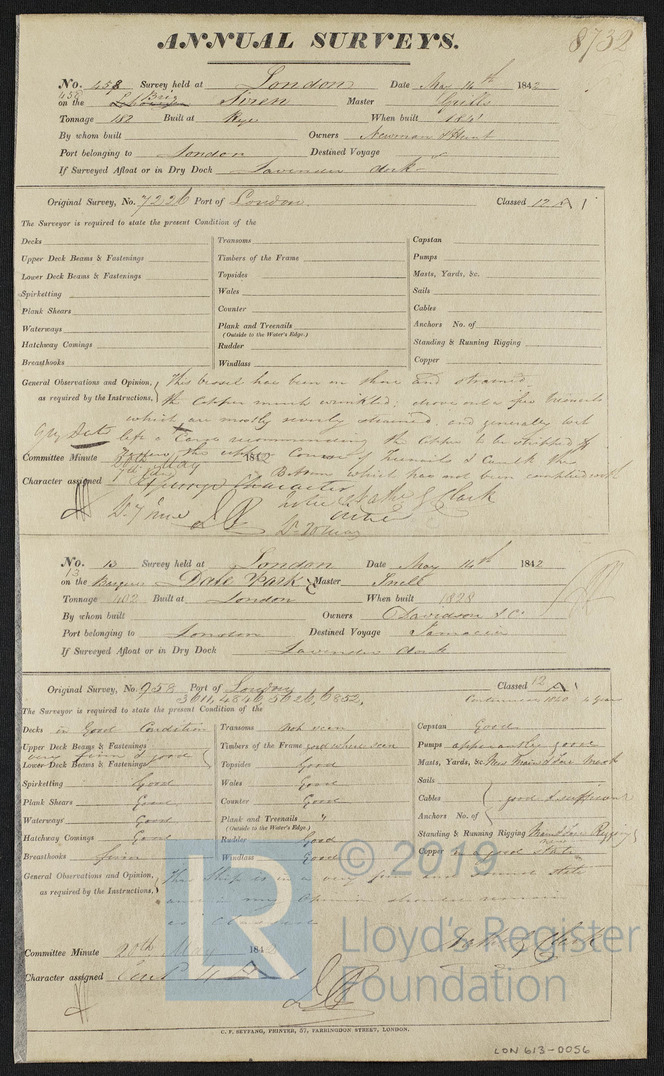 8732
ANNUAL SURVEYS.
No. 458 Survey held at London Date May 14th 1842
458 on the Brig Siren Master
Tonnage 182 Built at Rye When built 1841
By whom built Owners Newman & Hunt
Port belonging to London Destined Voyage
If Surveyed Afloat or in Dry Dock Lavender dock
Original Survey, No. 7226 Port of London. Classed 12 A 1
The Surveyor is required to state the present Condition of the
Decks Transoms Capstan
Upper Deck Beams & Fastenings Timbers of the Frame Pumps
Lower Deck Beams & Fastenings Topsides Masts, Yards, &c.
Spirketting Wales Sails
Plank Shears Counter Cables
Waterways Plank and Treenails Anchors No. of
(Outside to the Water's Edge.)
Hatchway Comings Rudder Standing & Running Rigging
Breasthooks Windlass Copper
General Observations and Opinion, This vessel has been on shore and strained
as required by the Instructions, the copper much wrinkled; drove out a few treenails
which are mostly strained, and generally
left a recommending the copper to be stripped
the upper Course of Treenails & Caulk the
Committee Minute 1842
which has not been complied with
Character assigned
Clark
No. 13 Survey held at London Date May 14th 1842
13 on the Barque Date Park Master Snell
Tonnage 402 Built at London When built 1828
By whom built Owners Davidson & Co.
Port belonging to London Destined Voyage Jamaica
If Surveyed Afloat or in Dry Dock Lavender dock
Original Survey, No. 958 Port of London Classed 12 A 1
3611, 4846, 5626, 5852, Continued 1840 4 years
The Surveyor is required to state the present Condition of the
Decks in Good Condition Transoms not seen Capstan Good
Upper Deck Beams & Fastenings Timbers of the Frame good where seen Pumps apparently good
very firm & good
Lower Deck Beams & Fastenings Topsides Good Masts, Yards, &c.
Spirketting Good Wales Good Sails
Plank Shears Good Counter Good Cables good & sufficient
Waterways Good Plank and Treenails " Anchors No. of
(Outside to the Water's Edge.)
Hatchway Comings Good Rudder Good Standing & Running Rigging
Breasthooks firm Windlass Good Copper in good State
General Observations and Opinion, This Ship is in a very firm and sound state
as required by the Instructions, and in my Opinion should remain
as Classed
Committee Minute 20th May 1842
Clark
Character assigned Cont 4 A 1
LR
© 2019
Lloyd's Register
Foundation
C. F. SEYFANG, PRINTER, 57, FARRINGDON STREET, LONDON.
LON 613-0056